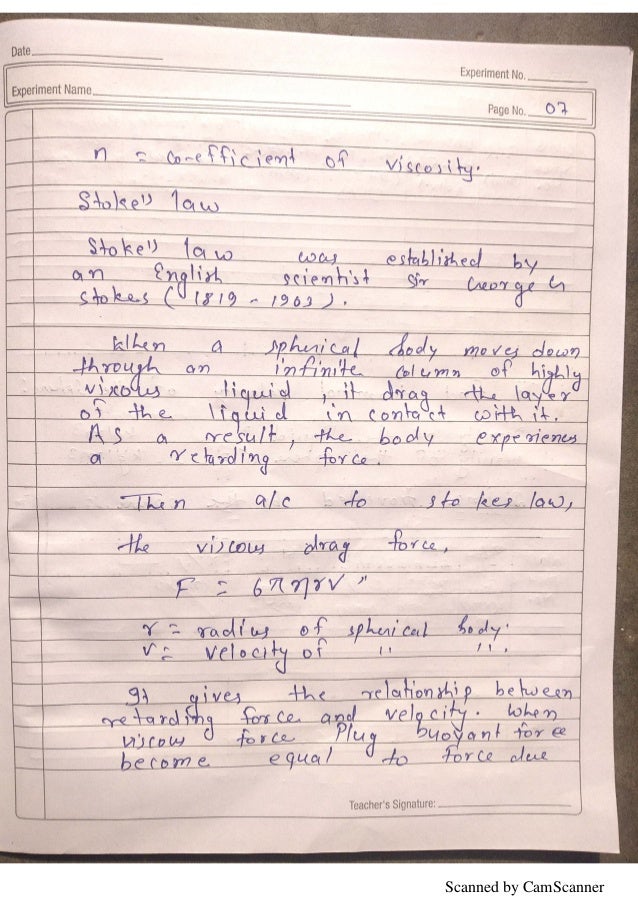 Date
Experiment No.
Experiment Name
Page No. 07
η = co-efficient of viscosity.
Stoke's law
Stoke's law was established by
an English scientist Sir George G
Stokes (1819 - 1903).
When a spherical body moves down
through an infinite column of highly
vixous liquid, it drag the layer
of the liquid in contact with it.
As a result, the body experiences
a retarding force.
Then a/c to stokes law,
the viscous drag force,
F = 6πηrv "
r = radius of spherical body.
v = velocity of " ".
It gives the relationship between
retarding force and velocity. When
viscous force Plug buoyant force
become equal to force due
Teacher's Signature:
Scanned by CamScanner